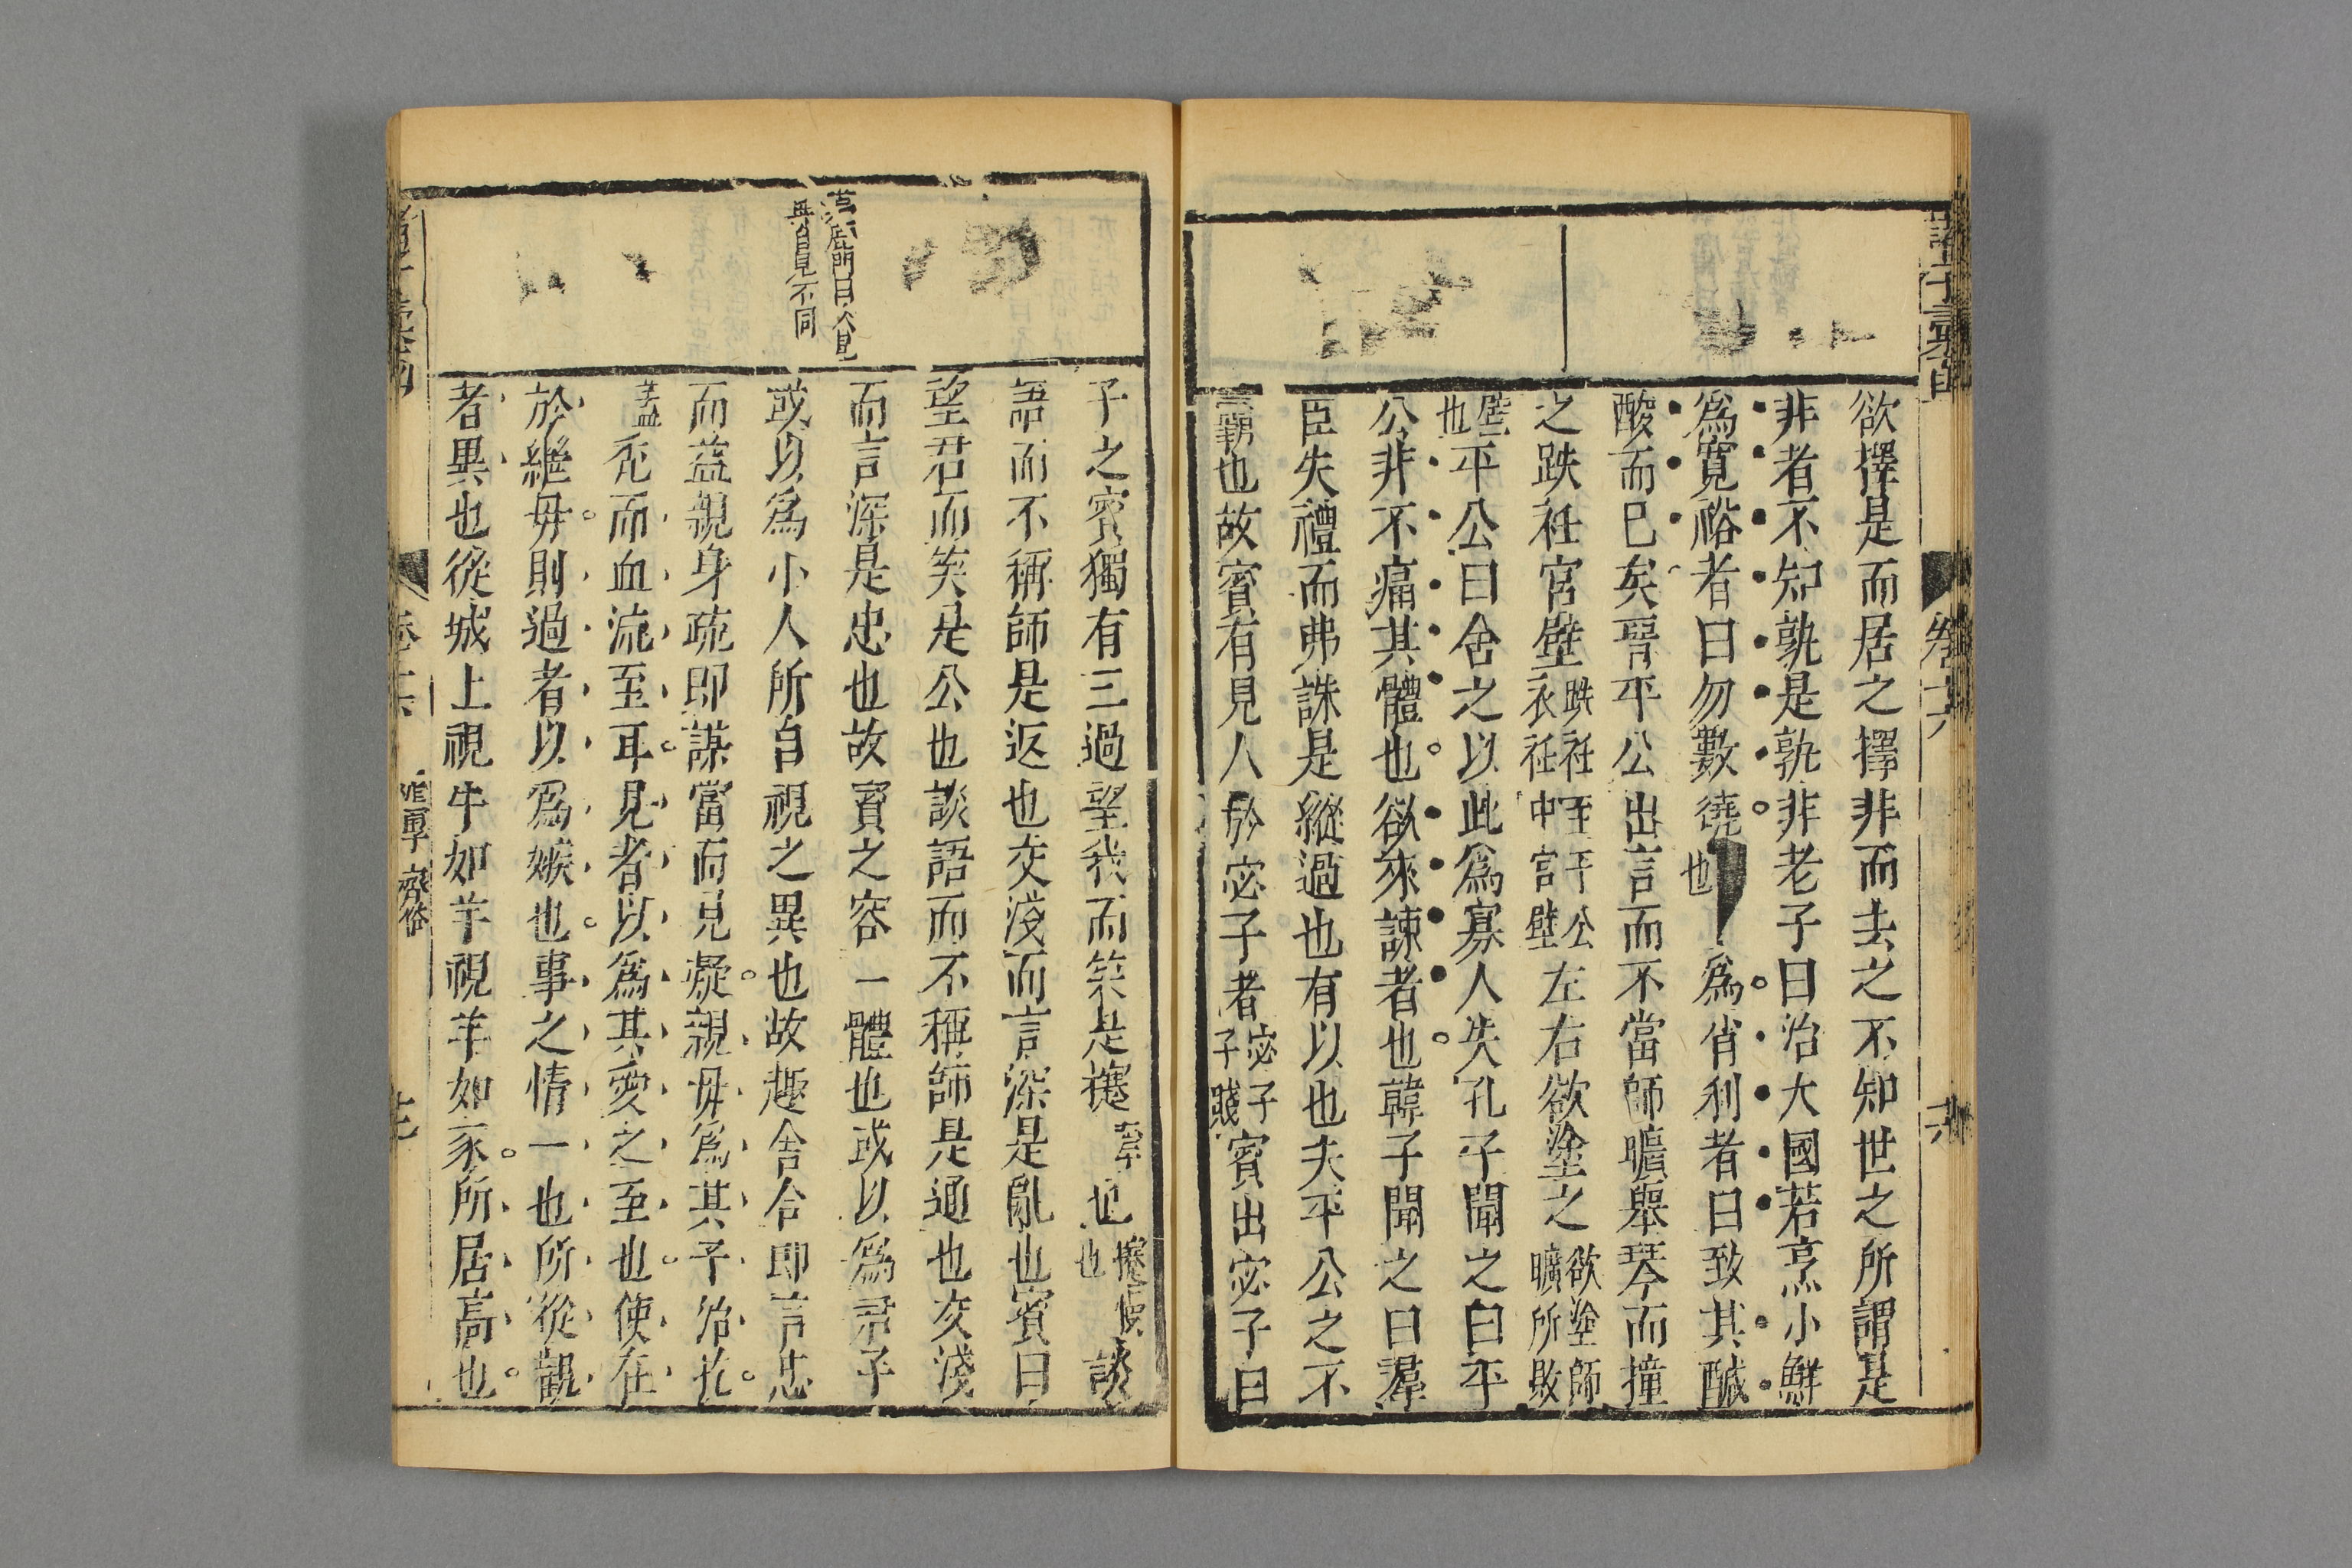 欲擇是而居之擇非而去之不知世之所謂是
非者不知孰是孰非老子曰治大國若烹小鮮
爲寛裕者曰勿數撓也爲消利者曰致其醎
酸而巳矣晉平公出言而不當師曠舉琴而撞
之跌衽宮壁跌衽至平公衣衽中宮壁左右欲塗之欲塗師曠所敗
壁也平公曰舍之以此爲寡人失孔子聞之曰平
公非不痛其體也欲來諫者也韓子聞之曰羣
臣失禮而弗誅是縱過也有以也夫平公之不
霸也故賓有見人於宓子者宓子子賤賓出宓子曰
子之賓獨有三過望我而笑是攓也攓慢也談
語而不稱師是返也交淺而言深是亂也賓曰
望君而笑是公也談語而不稱師是通也交淺
而言深是忠也故賓之容一體也或以爲君子
或以爲小人所自視之異也故趣舍合即言忠
而益親身疏即謀當而見疑親母爲其子治扢
蓋禿而血流至耳見者以爲其愛之至也使在
於繼母則過者以爲嫉也事之情一也所從觀
者異也從城上視牛如羊視羊如豕所居高也
鹿門曰人見
與自見不同
卷十六
齊俗